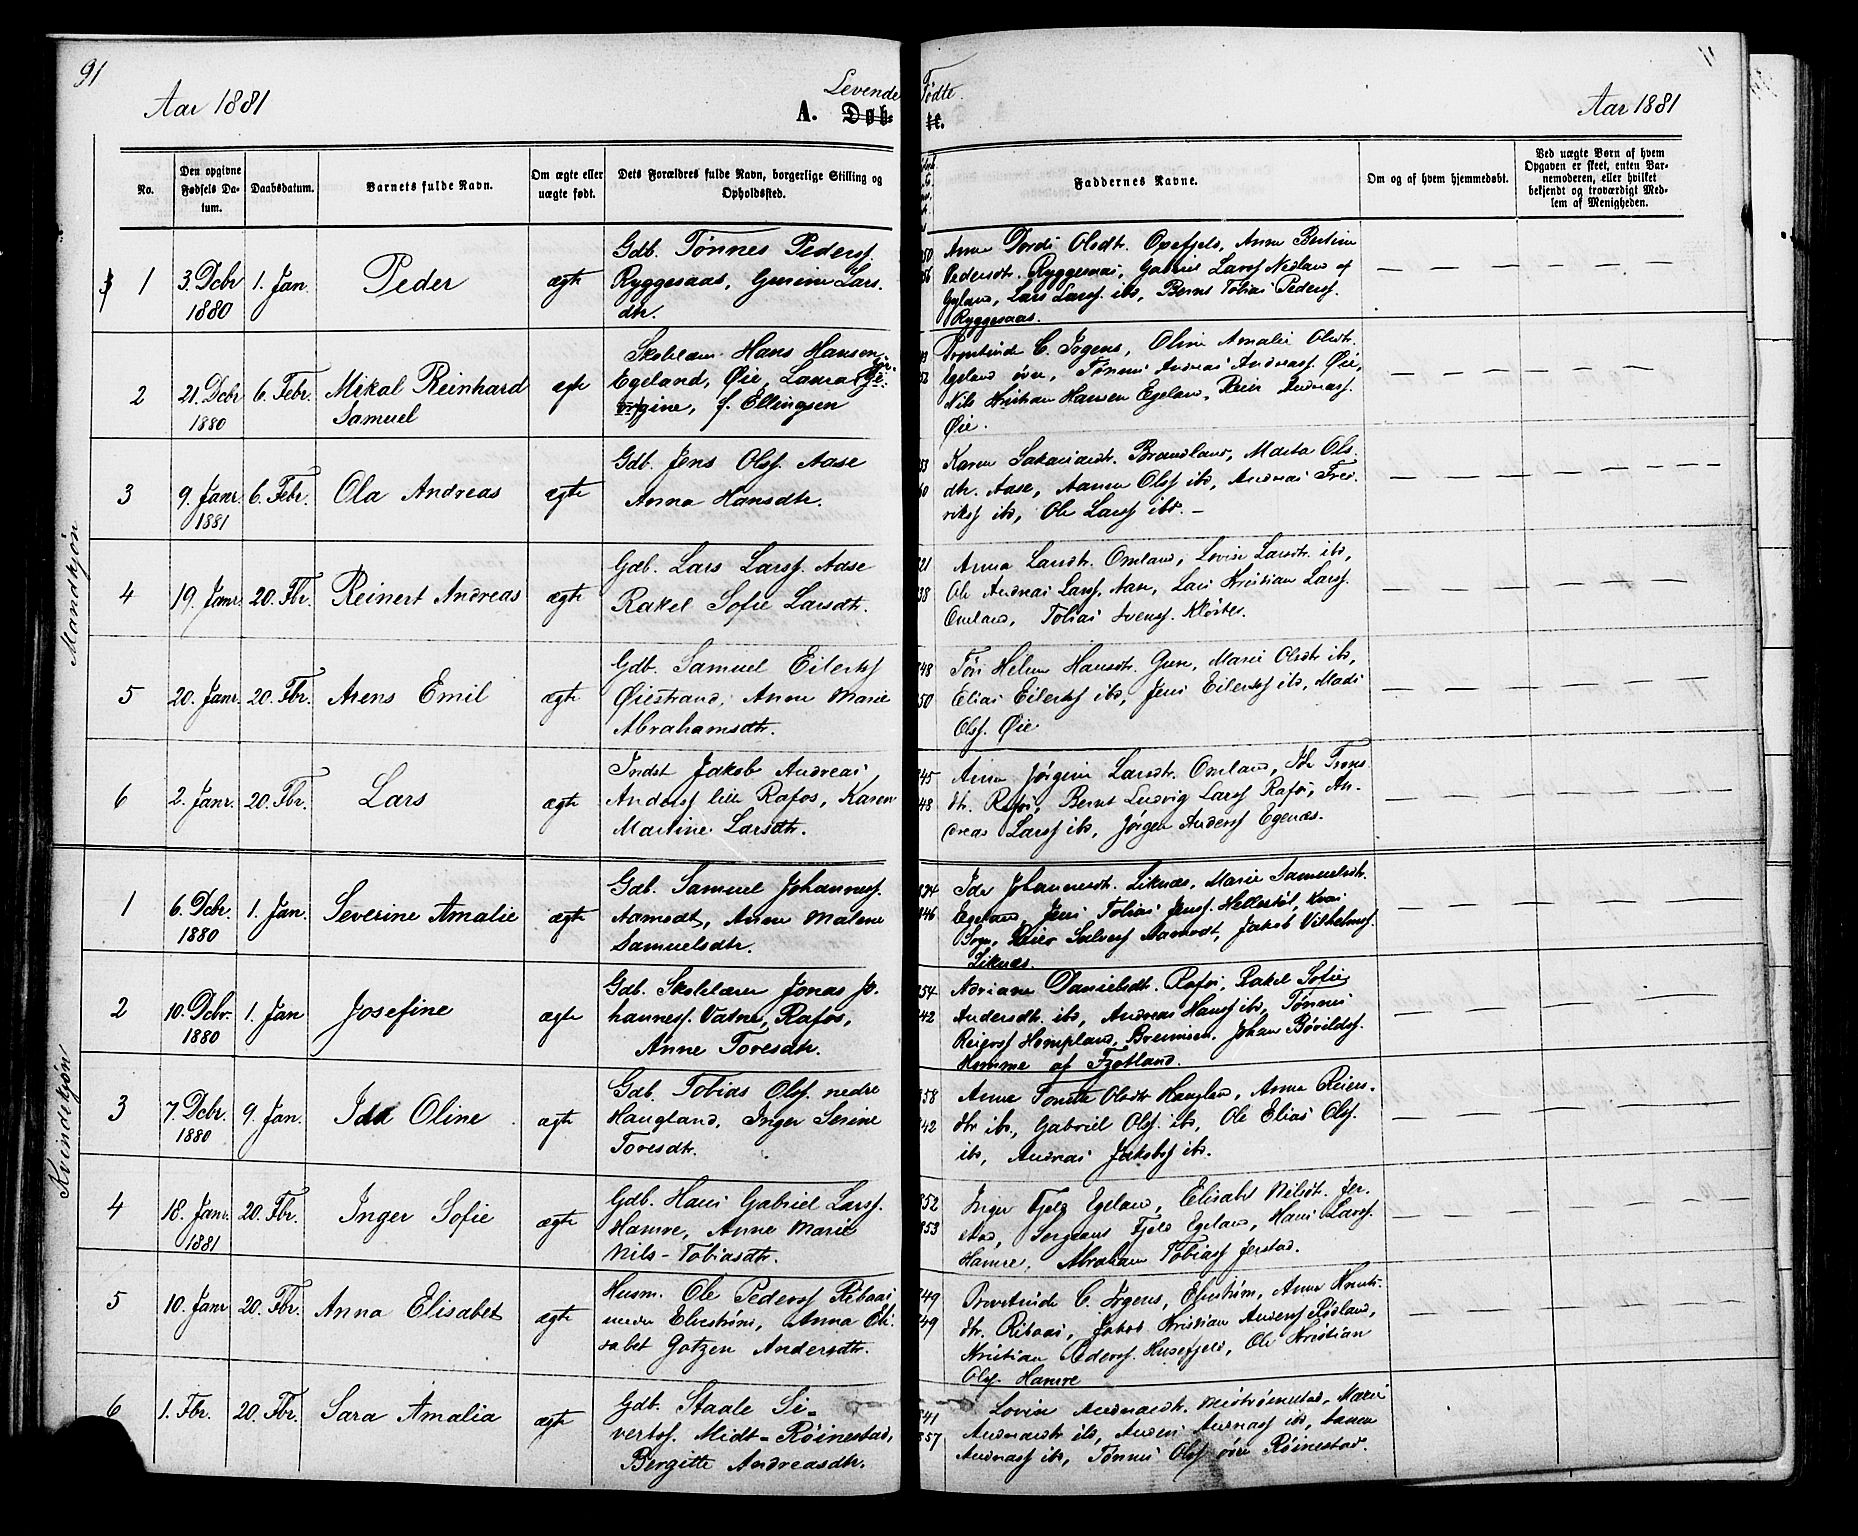 91
Aar 1881
Levende Fødte.
A. Døbte.
Aar 1881
11
No.
Den opgivne Fødsels Datum.
Daabsdatum.
Barnets fulde Navn.
Om ægte eller uægte født.
Dets Forældres fulde Navn, borgerlige Stilling og Opholdssted.
Faddernes Navne.
Om og af hvem hjemmedøbt.
Ved uægte Børn af hvem
Opgaven er skeet, enten Bar-
nemoderen, eller hvilket
bekjendt og troværdigt Med-
lem af Menigheden.
Mandkjøn
1 3. Dcbr 1880 1. Jan. Peder ægte
Gdb. Tønnes Pederss.
Ryggesaas, Gurine Lars-
dtr.
Anna Dordi Olsdtr. Oxefjeld, Anne Bertine
Pedersdtr. Ryggesaas, Gabriel Larss Nedland af
Gyland, Lars Larss. ibd, Bernt Tobias Pederss.
Ryggesaas.
2 21. Dcbr 1880 6. Febr. Mikal Reinhard Samuel ægte
Skolelær. Hans Hansen
Egeland, Øie, Laura
f. Ellingsen
C. Irgens, Oline Amalie Olsdtr.
Egeland øvre, Tønnes Andreas Andreass. Øie,
Nils Kristian Hansen Egeland, Reier Andreass.
Øie.
3 9. Janr. 1881 6. Febr. Ola Andreas ægte
Gdb. Jens Olss. Aase
Anna Hansdtr.
Karen Sakariasdtr. Brandland, Marta Ols-
dtr. Aase, Aanen Olss ibd, Andreas Fred-
rikss ibd, Ole Larss ibd. –
4 19. Janr. 20. Fbr. Reinert Andreas ægte
Gdb. Lars Larss. Aase
Rakel Sofie Larsdtr.
Anna Larsdtr. Omland, Lovise Larsdtr. ibd,
Ole Andreas Larss. Aase, Lars Kristian Larss.
Omland, Tobias Svenss. Kloster.
5 20. Janr. 20. Fbr. Arens Emil ægte
Gdb. Samuel Eilertss
Øiestrand, Anne Marie
Abrahamsdtr.
Helene Hansdtr. Marie Olsdtr ibd,
Elias Eilertss ibd, Jens Eilertss ibd, Mads
Olss. Øie
6 2. Janr. 20. Fbr. Lars ægte
Indst Jakob Andreas
Anderss lille Rafos, Karen
Martine Larsdtr.
Anne Jørgine Larsdtr. Omland,
dtr. Rafos, Bernt Ludvig Larss Rafos, An-
dreas Larss ibd, Jørgen Anderss Egenæs.
Kvindekjøn
1 6. Dcbr. 1880 1. Jan. Severine Amalie ægte
Gdb. Samuel Johanness.
Aamodt, Anne Malene
Samuelsdtr.
Ida Johannesdtr. Liknæs, Marie Samuelsdtr.
Egeland, Jens Tobias Jenss. Hellestøl, Kvas
Sogn, Reier Salvess Aamodt, Jakob Vilhelmss.
Liknæs.
2 10. Dcbr. 1880 1. Jan Josefine ægte
Gdb. Skolelærer Jonas Jo-
hanness. Vatne, Rafos,
Anne Toresdtr.
Adriane Danielsdtr. Rafos, Rakel Sofie
Andersdtr. ibd, Andreas Hanss ibd, Tønnes
Reierss Hompland, Johan Bøvildss.
Homme af Fjotland.
3 7. Dcbr. 1880 9. Jan. Ida Oline ægte
Gdb. Tobias Olss. nedre
Haugland, Inger Serine
Toresdtr.
Anne Tonette Olsdtr Haugland, Anna Reiers-
dtr ibd., Gabriel Olss. ibd, Ole Elias Olss.
ibd, Andreas Jakobss ibd.
4 18. Janr. 1881 20. Fbr. Inger Sofie ægte
Gdb. Hans Gabriel Larss.
Hamre, Anne Marie
Nils-Tobiasdtr.
Inger Fjeld Egeland, Elisabet Nilsdtr. Jer-
stad, Sergeant Fjeld Egeland, Hans Larss.
Hamre, Abraham Tobiass Jerstad.
5 10. Janr 20. Fbr. Anna Elisabet ægte
Husm. Ole Pederss Ribaas
under Eliestrøm, Anna Eli-
sabet Gotzen Andersdtr.
Provstinde C. Irgens, Eliestrøm, Anne
dtr. Ribaas, Jakob Kristian Anderss Rødland,
Kristian Pederss. Husefjeld, Ole Kristian
Olss. Hamre
6 1. Fbr. 20. Fbr. Sara Amalia ægte
Gdb. Staale Si-
vertss. Midt-Røinestad,
Bergitte Andreasdtr.
Lovise Andreasdtr. Midtrøinestad, Marie
Andreasdtr ibd, Anders Andreass ibd, Aanen
Andreass ibd, Tønnes Olss øvre Røinestad.